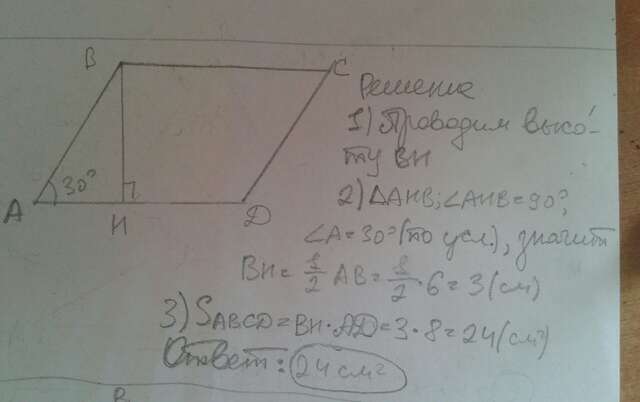 B
C
30°
A
H
D
Решение
1) Проводим высо-
ту BH
2) △AHB; ∠AHB=90°,
∠A=30° (по усл.), значит
BH = 1/2 AB = 1/2 · 6 = 3 (см)
3) SABCD = BH · AD = 3 · 8 = 24 (см²)
Ответ: 24 см²
B